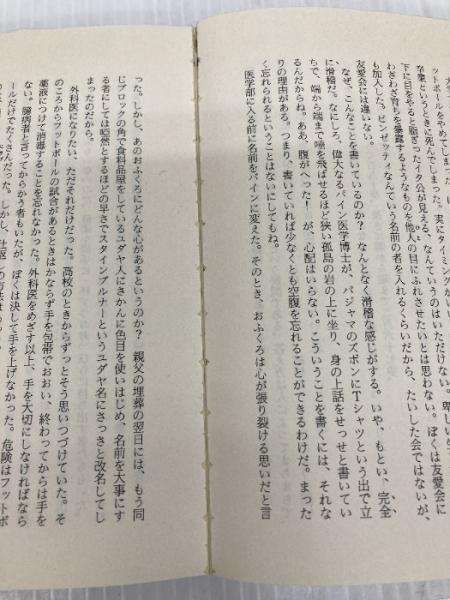 ットボールをやめてしまった。
卒業というときに死んでしまった。実にタイミングが
下に目をやると脂ぎったイタ公が見える、なんていうのはいただけない。卑しい
わざわざ育ちを暴露するようなものを他人の目にふれさせたいとは思わない。ぼくは友愛会に
も加入した。ピンゼッティなんていう名前の者を入れるくらいだから、たいした会ではないが、
友愛会には違いない。
なぜ、こんなことを書いているのか？　なんとなく滑稽な感じがする。いや、もとい、完全
に滑稽だ。なにしろ、偉大なるパイン医学博士が、パジャマのズボンにTシャツという出で立
ちで、端から端まで唾を飛ばせるほど狭い孤島の岩の上に坐り、身の上話をせっせと書いてい
るんだからね。ああ、腹がへった！　が、心配はいらない。こういうことを書くには、それな
りの理由がある。つまり、書いていれば少なくとも空腹を忘れることができるわけだ。まった
く忘れられるということはないにしてもね。
医学部に入る前に名前をパインに変えた。そのとき、おふくろは心が張り裂ける思いだと言
った。しかし、あのおふくろにどんな心があるというのか？　親父の埋葬の翌日には、もう同
じブロックの角で食料品屋をしているユダヤ人にさかんに色目を使いはじめ、名前を大事にす
る者にしては唖然とするほどの早さでスタインブルナーというユダヤ名にさっさと改名してし
まったのだから。
外科医になりたい、ただそれだけだった。高校のときからずっとそう思いつづけていた。そ
のころからフットボールの試合があるときはかならず手を包帯でおおい、終わってからは手を
薬液につけて消毒することを忘れなかった。外科医をめざす以上、手を大切にしなければなら
ない。臆病者と言ってからかう者もいたが、ぼくは決して手を上げなかった。危険はフットボ
ールだけでたくさんだった。しかし、仕返しの方法は